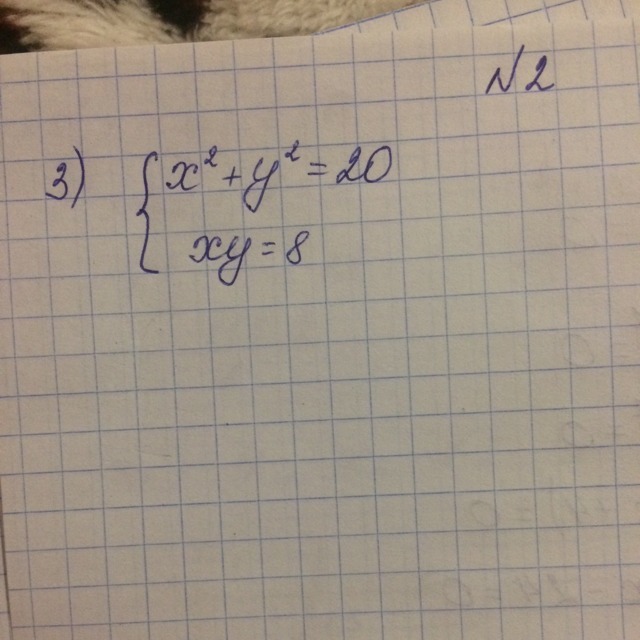 N2
3) { x² + y² = 20
xy = 8